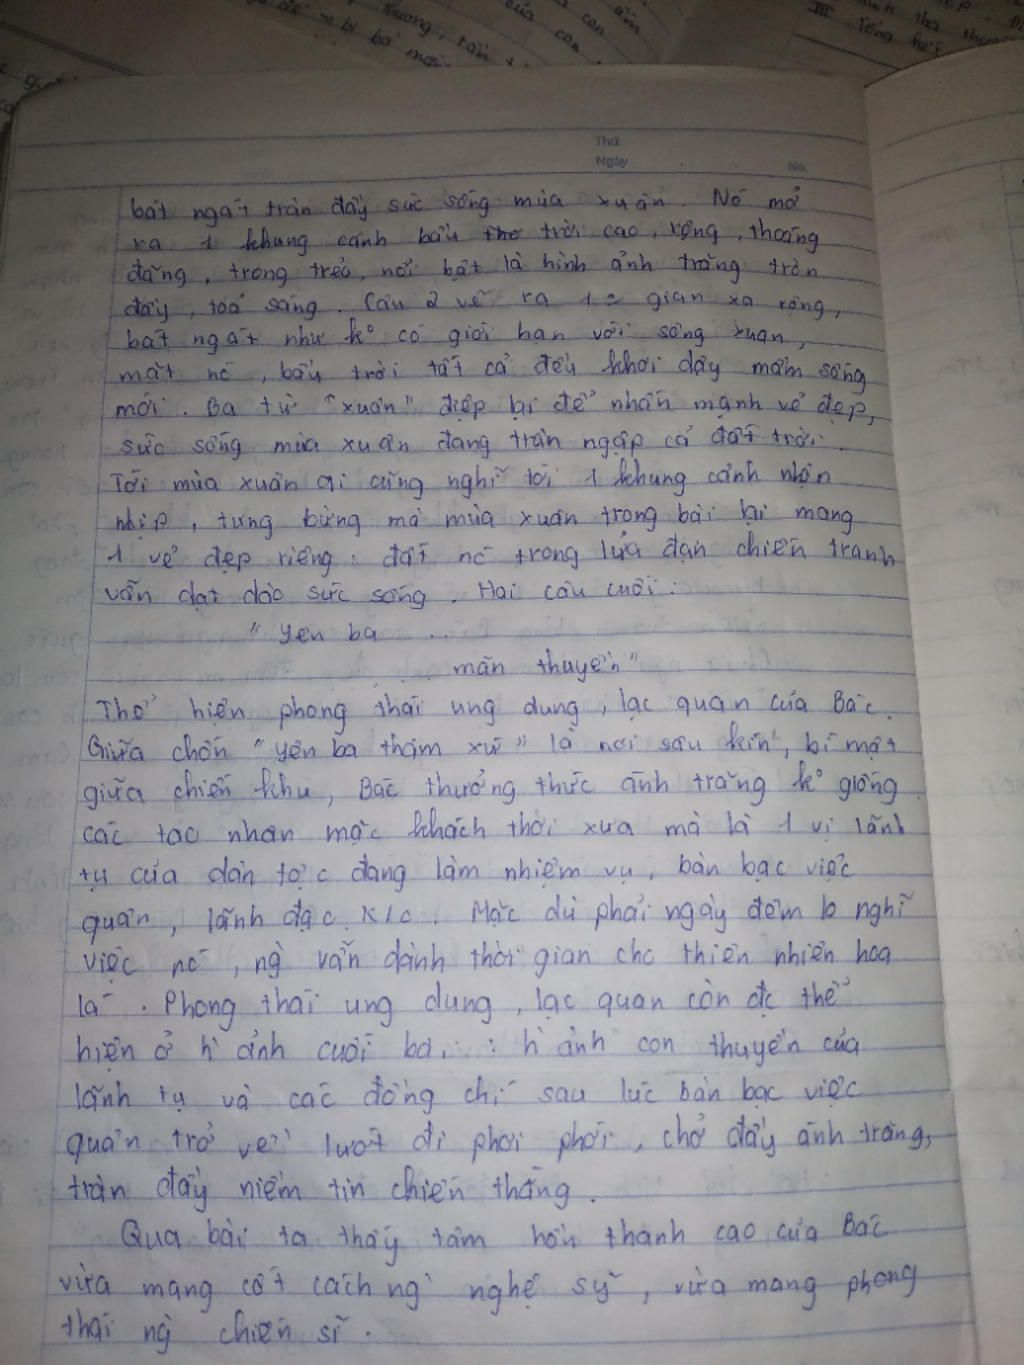 Thứ
Ngày
No.
bát ngát tràn đầy sức sống mùa xuân. Nó mở
ra 1 khung cảnh bầu trời cao, rộng, thoáng
đãng, trong trẻo, nổi bật là hình ảnh trăng tròn
đầy, toả sáng. Câu 2 vẽ ra 1 = gian xa rộng,
bát ngát như k° có giới hạn với sông xuân,
mặt nc, bầu trời tất cả đều khơi dậy mầm sống
mới. Ba từ "xuân" điệp lại để nhấn mạnh vẻ đẹp,
sức sống mùa xuân đang tràn ngập cả đất trời.
Tới mùa xuân ai cũng nghĩ tới 1 khung cảnh nhộn
nhịp, tưng bừng mà mùa xuân trong bài lại mang
1 vẻ đẹp riêng: đất nc trong lửa đạn chiến tranh
vẫn dạt dào sức sống. Hai câu cuối:
"Yên ba ...
mãn thuyền"
Thể hiện phong thái ung dung, lạc quan của Bác.
Giữa chốn "yên ba thâm xứ" là nơi sâu kín, bí mật
giữa chiến khu, Bác thưởng thức ánh trăng k° giống
các tao nhân mặc khách thời xưa mà là 1 vị lãnh
tụ của dân tộc đang làm nhiệm vụ, bàn bạc việc
quân, lãnh đạo K/c. Mặc dù phải ngày đêm lo nghĩ
việc nc, ng` vẫn dành thời gian cho thiên nhiên hoa
lá. Phong thái ung dung, lạc quan còn đc thể
hiện ở h` ảnh cuối bài: h` ảnh con thuyền của
lãnh tụ và các đồng chí sau lúc bàn bạc việc
quân trở về lướt đi phơi phới, chở đầy ánh trăng,
tràn đầy niềm tin chiến thắng.
Qua bài ta thấy tâm hồn thanh cao của Bác
vừa mang cốt cách ng` nghệ sỹ, vừa mang phong
thái ng` chiến sĩ.